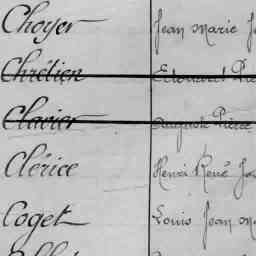 Choyer Jean Marie
Chrétien Edouard
Clavier Auguste Pierre
Clérice Henri René
Coget Louis Jean